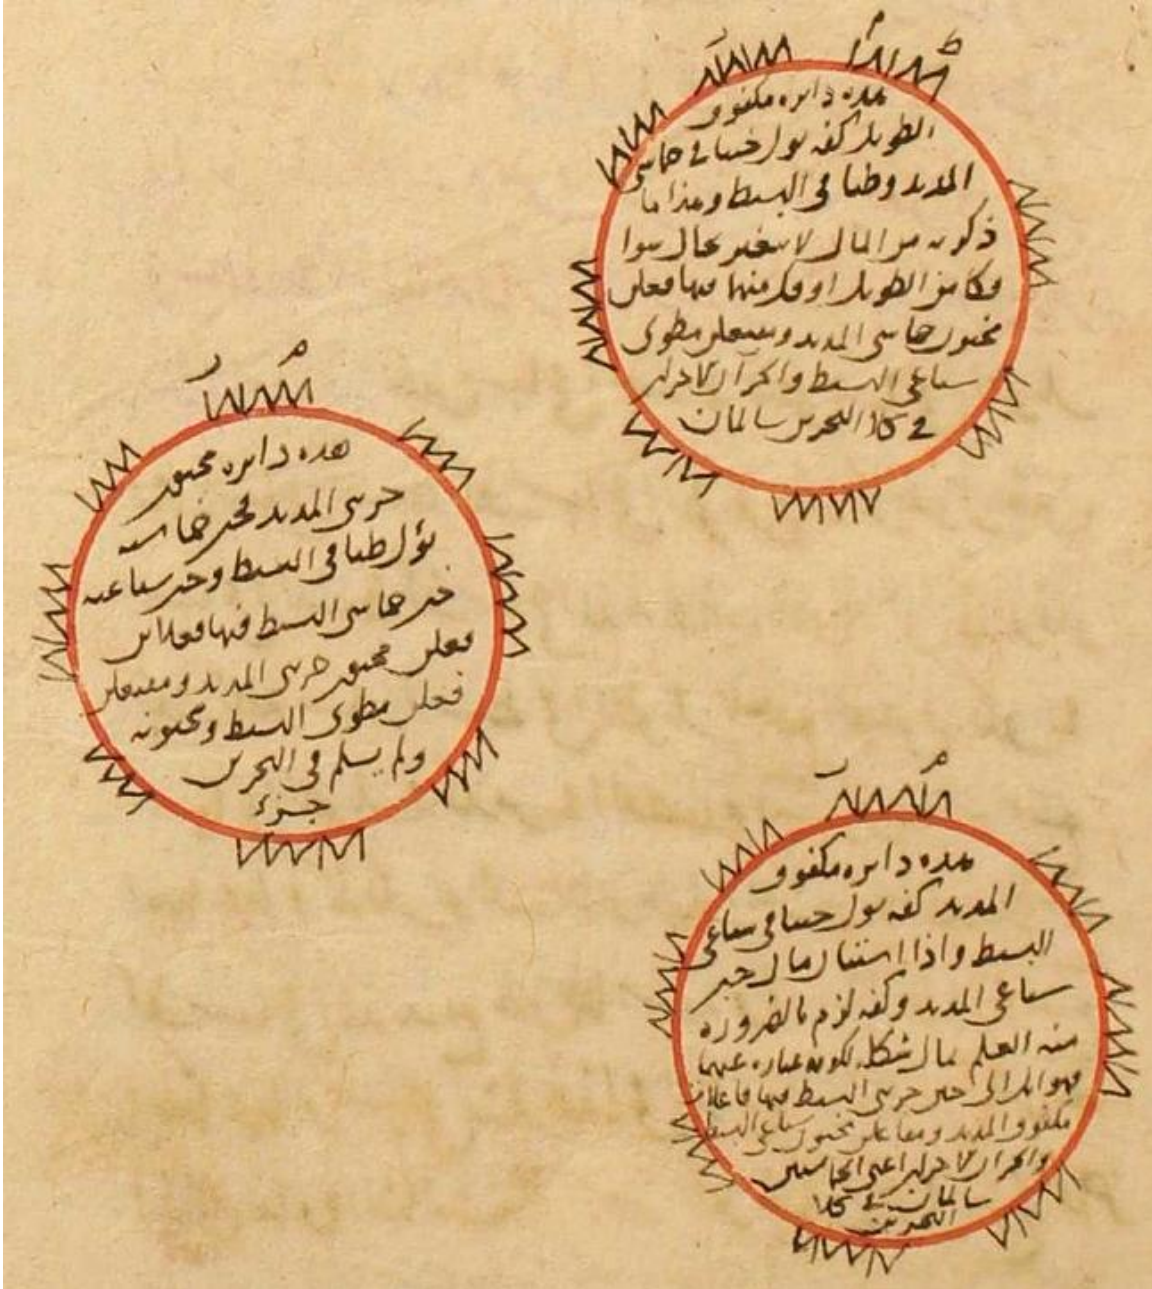 هذه دائرة مكفوف
الطويل كفه يول خبنا في خماسي
المديد وطيا في البسيط وهذا ما
ذكرت من المال لا يتغير بحال سوا
الطويل او فك منها فيها فعلن
مخبون خماسي المديد ومفتعلن مطوي
سباعي البسيط واخر الاجزاء
في كلا البحرين سالمان
هذه دائرة مخبون
جزءي المديد فخبن خماسيه
يؤل طيا في البسيط وخبن سباعيه
خبن خماسي البسيط فيها فعلاتن
فعلن مخبون جزءي المديد ومفتعلن
فعلن مطوي البسيط ومخبونه
ولم يسلم في البحرين
جزء
هذه دائرة مكفوف
المديد كفه يول خبنا في سباعي
البسيط واذا استبان مال خبن
سباعي المديد وكفه لزم بالضرورة
منه العلم بمال شكله لكونه عبارة عنهما
فهو ايل الى خبن جزءي البسيط فيها فاعلات
مكفوف المديد ومفاعلن مخبون سباعي البسيط
واخر الاجزاء اعني الخماسيين
سالمان في كلا
البحرين